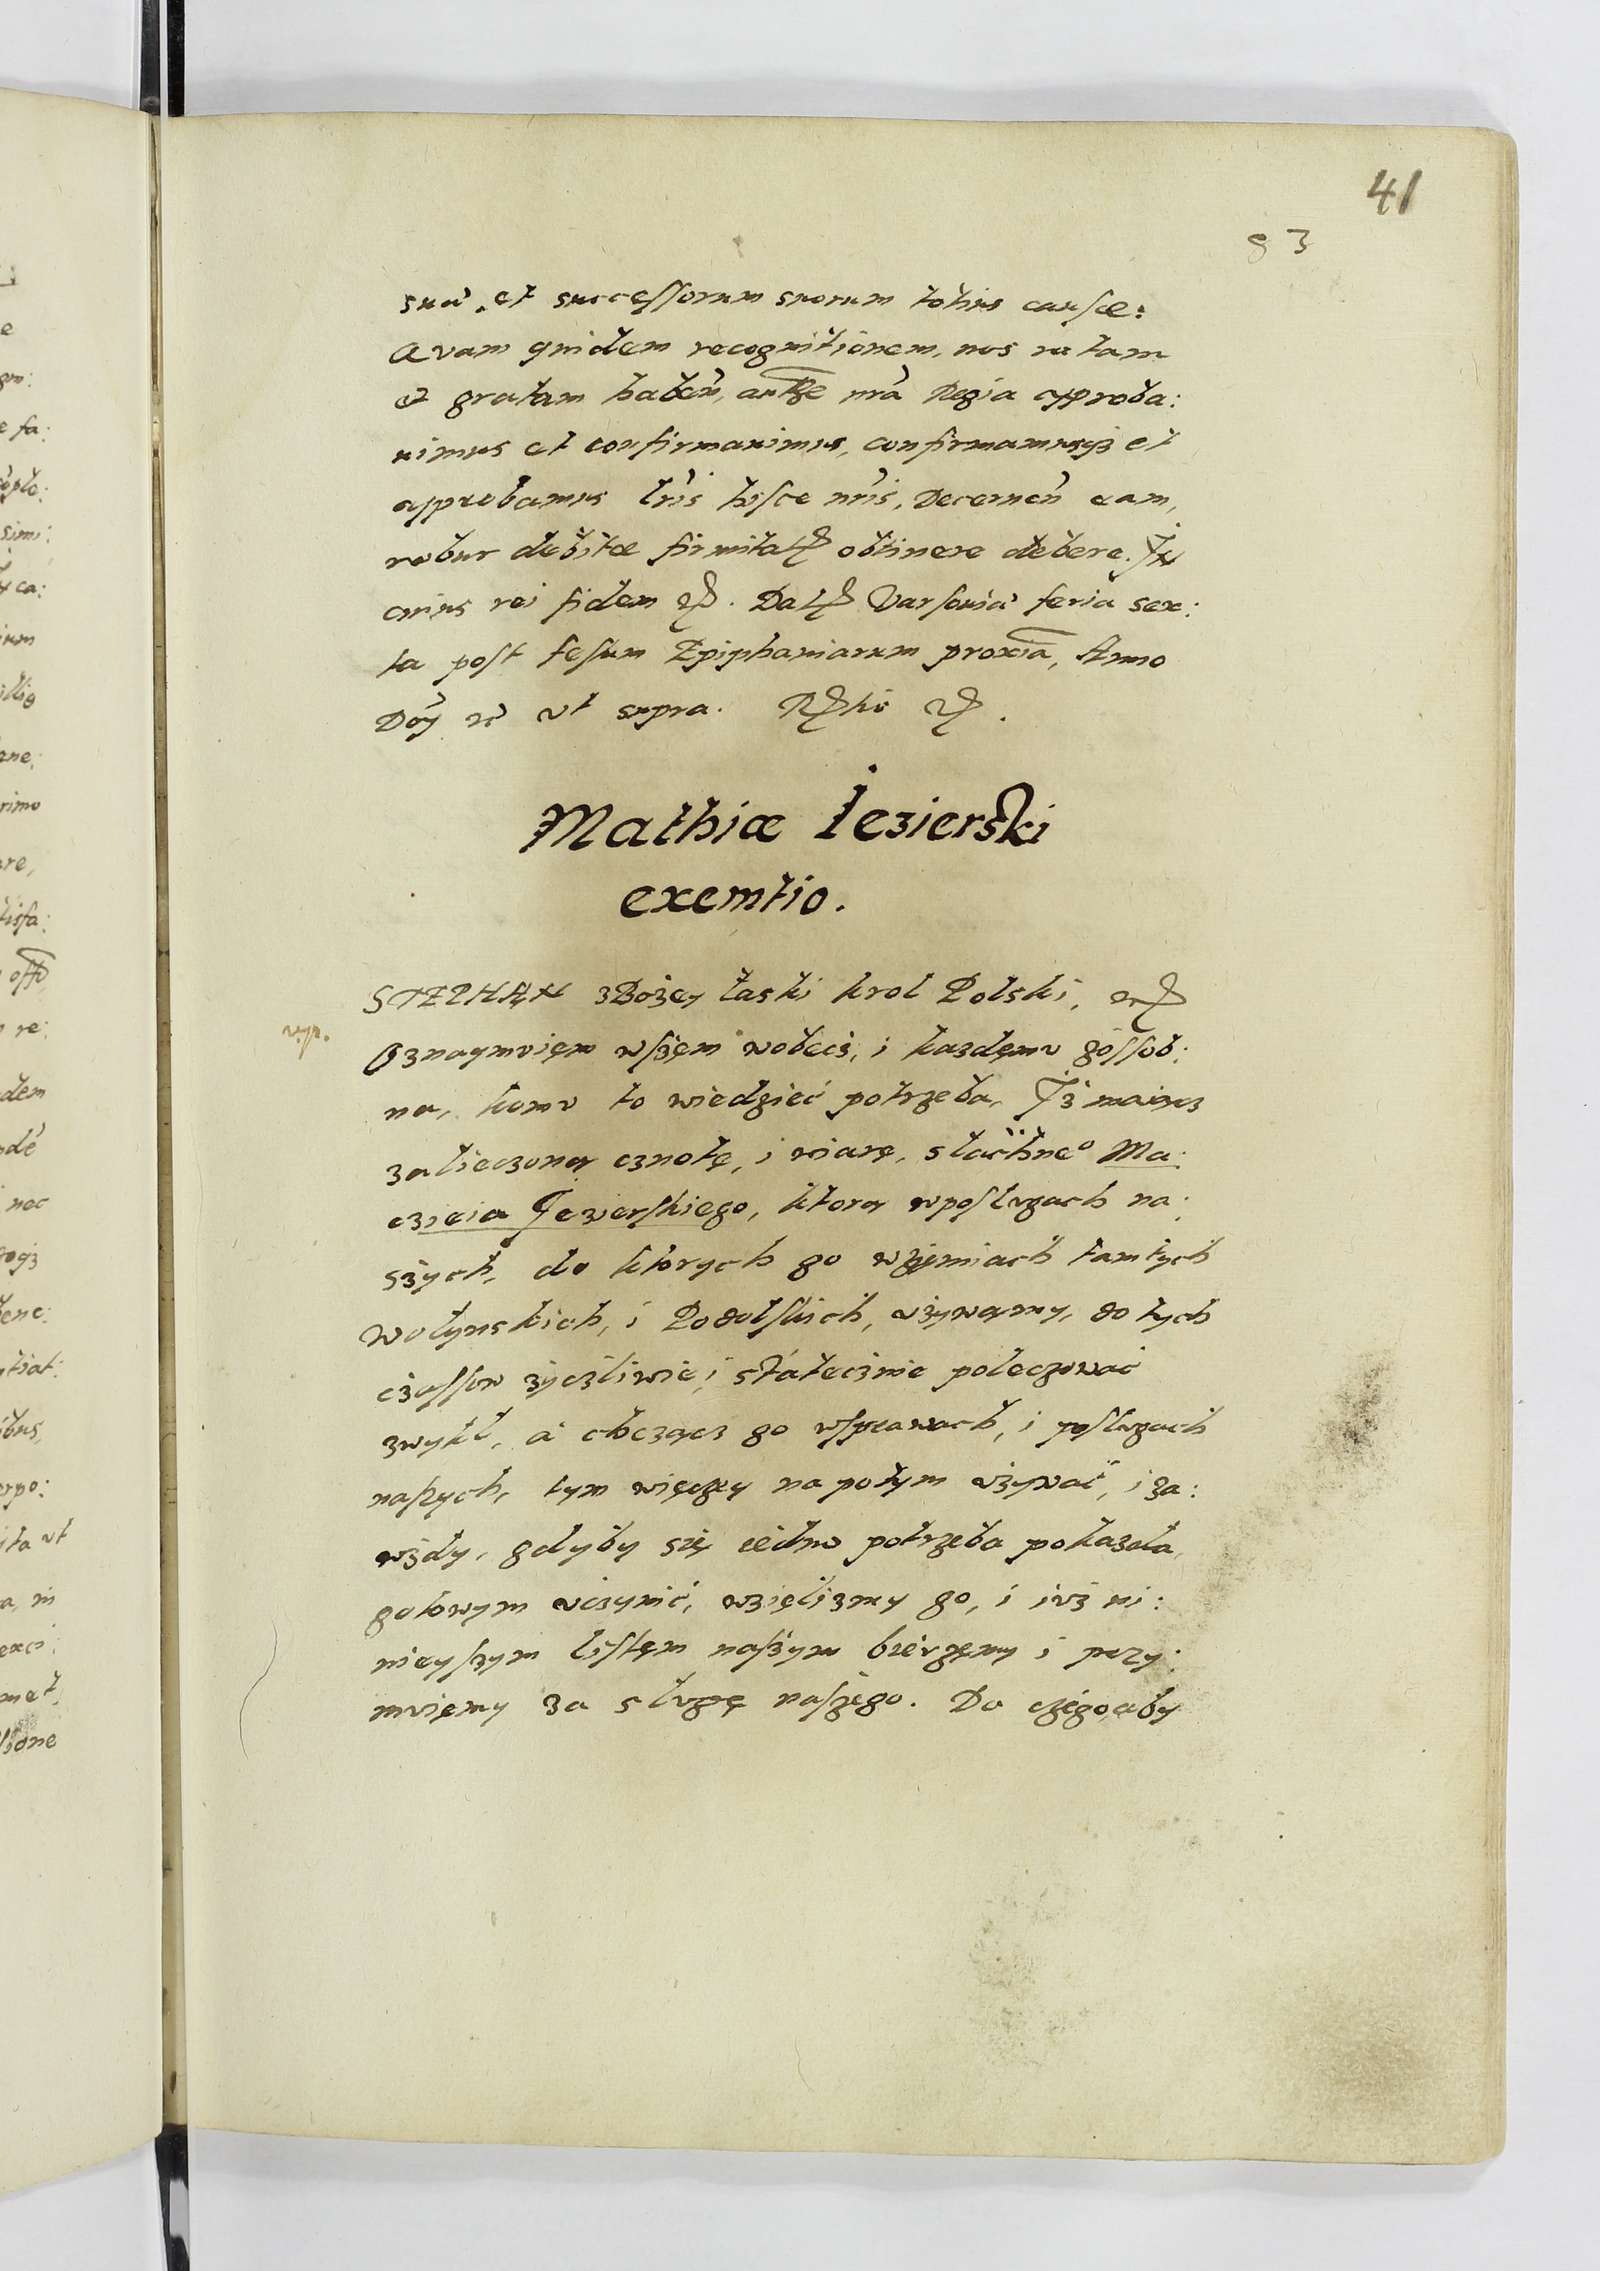 41
83
suá. et successorum suorum totius causæ:
Qvam quidem recognitionem, nos ratam
et gratam haben̄, autħe nrā Regia approba:
uimus et confirmauimus, confirmamusq3 et
approbamus lr̄is hisce nr̄is, Decernen̄ eam,
robur debitæ firmitat obtinere debere. In
cuius rei fidem etc. Dat Varsouiá feria sex:
ta post festum Epiphaniarum proxiā, Anno
Dn̄j ec̄ vt supra.
Mathiæ Iezierski
exemtio.
STEPHAN zBożey łaski krol Polski, etc
Oznaymvięm wssżem wobecż, i każdęmv zossob:
na, komv to wiedzieć potrzeba, Iż maiącz
zalieczoną cznotę, i wiarę, slachneo Ma:
czieia Jezierskiego, ktorą wposlvgach na:
sżych, do ktorych go wziemiach tamtych
Wołynskich, i Podolskich, vżywamy, do tych
cżassow życzliwie, i státecżnie polieczować
zwykł, á chczącz go wsprawach, i poslvgach
naszych, tym więczey napotym vżywać, i za:
wżdy, gdyby się iedno potrzeba pokazała,
gotowym vcżynić, wzięlizmy go, i ivż ni:
nieyszym listęm naszym bierzęmy i przy:
mvięmy za slvgę naszego. Do czego, aby